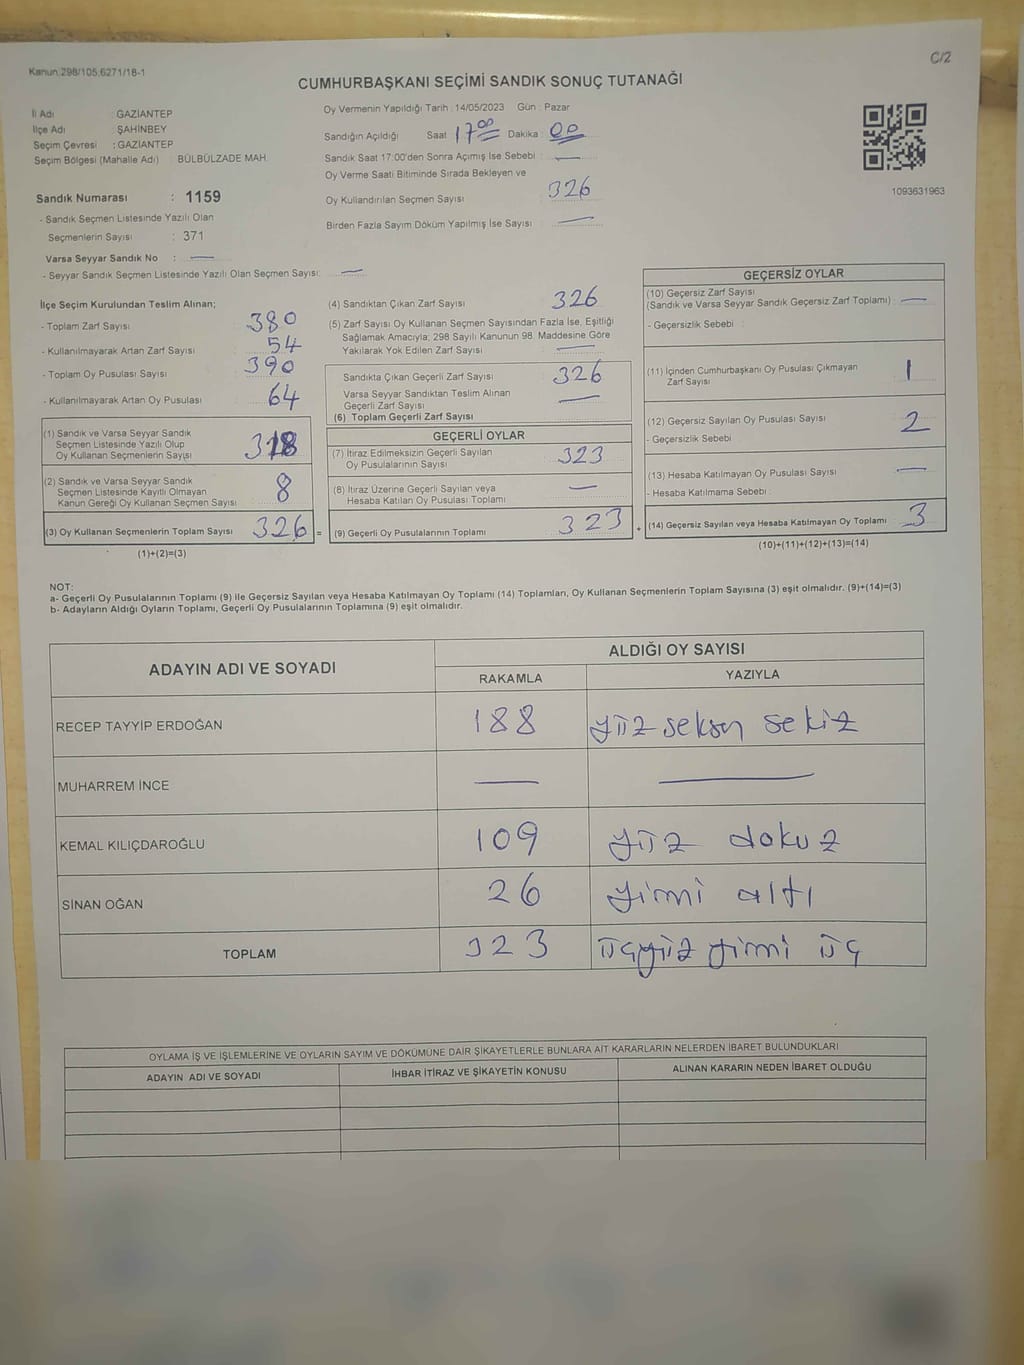 Kanun:298/105;6271/18-1
C/2
CUMHURBAŞKANI SEÇİMİ SANDIK SONUÇ TUTANAĞI
İl Adı : GAZİANTEP
İlçe Adı : ŞAHİNBEY
Seçim Çevresi : GAZİANTEP
Seçim Bölgesi (Mahalle Adı) : BÜLBÜLZADE MAH.
Sandık Numarası : 1159
- Sandık Seçmen Listesinde Yazılı Olan
Seçmenlerin Sayısı : 371
Varsa Seyyar Sandık No : —
- Seyyar Sandık Seçmen Listesinde Yazılı Olan Seçmen Sayısı: —
Oy Vermenin Yapıldığı Tarih : 14/05/2023 Gün : Pazar
Sandığın Açıldığı Saat : 17:00 Dakika : 00
Sandık Saat 17:00'den Sonra Açımış İse Sebebi : —
Oy Verme Saati Bitiminde Sırada Bekleyen ve
Oy Kullandırılan Seçmen Sayısı : 326
Birden Fazla Sayım Döküm Yapılmış İse Sayısı : —
1093631963
İlçe Seçim Kurulundan Teslim Alınan;
- Toplam Zarf Sayısı : 380
- Kullanılmayarak Artan Zarf Sayısı : 54
- Toplam Oy Pusulası Sayısı : 390
- Kullanılmayarak Artan Oy Pusulası : 64
(1) Sandık ve Varsa Seyyar Sandık
Seçmen Listesinde Yazılı Olup
Oy Kullanan Seçmenlerin Sayısı 318
(2) Sandık ve Varsa Seyyar Sandık
Seçmen Listesinde Kayıtlı Olmayan
Kanun Gereği Oy Kullanan Seçmen Sayısı 8
(3) Oy Kullanan Seçmenlerin Toplam Sayısı 326 =
(1)+(2)=(3)
(4) Sandıktan Çıkan Zarf Sayısı 326
(5) Zarf Sayısı Oy Kullanan Seçmen Sayısından Fazla İse, Eşitliği
Sağlamak Amacıyla; 298 Sayılı Kanunun 98. Maddesine Göre
Yakılarak Yok Edilen Zarf Sayısı : —
Sandıkta Çıkan Geçerli Zarf Sayısı 326
Varsa Seyyar Sandıktan Teslim Alınan
Geçerli Zarf Sayısı —
(6) Toplam Geçerli Zarf Sayısı
GEÇERLİ OYLAR
(7) İtiraz Edilmeksizin Geçerli Sayılan
Oy Pusulalarının Sayısı 323
(8) İtiraz Üzerine Geçerli Sayılan veya
Hesaba Katılan Oy Pusulası Toplamı —
(9) Geçerli Oy Pusulalarının Toplamı 323 +
GEÇERSİZ OYLAR
(10) Geçersiz Zarf Sayısı
(Sandık ve Varsa Seyyar Sandık Geçersiz Zarf Toplamı) : —
- Geçersizlik Sebebi :
(11) İçinden Cumhurbaşkanı Oy Pusulası Çıkmayan
Zarf Sayısı 1
(12) Geçersiz Sayılan Oy Pusulası Sayısı 2
- Geçersizlik Sebebi :
(13) Hesaba Katılmayan Oy Pusulası Sayısı —
- Hesaba Katılmama Sebebi :
(14) Geçersiz Sayılan veya Hesaba Katılmayan Oy Toplamı 3
(10)+(11)+(12)+(13)=(14)
NOT:
a- Geçerli Oy Pusulalarının Toplamı (9) ile Geçersiz Sayılan veya Hesaba Katılmayan Oy Toplamı (14) Toplamları, Oy Kullanan Seçmenlerin Toplam Sayısına (3) eşit olmalıdır. (9)+(14)=(3)
b- Adayların Aldığı Oyların Toplamı, Geçerli Oy Pusulalarının Toplamına (9) eşit olmalıdır.
ADAYIN ADI VE SOYADI ALDIĞI OY SAYISI
RAKAMLA YAZIYLA
RECEP TAYYİP ERDOĞAN 188 yüz seksen sekiz
MUHARREM İNCE — —
KEMAL KILIÇDAROĞLU 109 yüz dokuz
SİNAN OĞAN 26 yirmi altı
TOPLAM 323 üçyüz yirmi üç
OYLAMA İŞ VE İŞLEMLERİNE VE OYLARIN SAYIM VE DÖKÜMÜNE DAİR ŞİKAYETLERLE BUNLARA AİT KARARLARIN NELERDEN İBARET BULUNDUKLARI
ADAYIN ADI VE SOYADI İHBAR İTİRAZ VE ŞİKAYETİN KONUSU ALINAN KARARIN NEDEN İBARET OLDUĞU